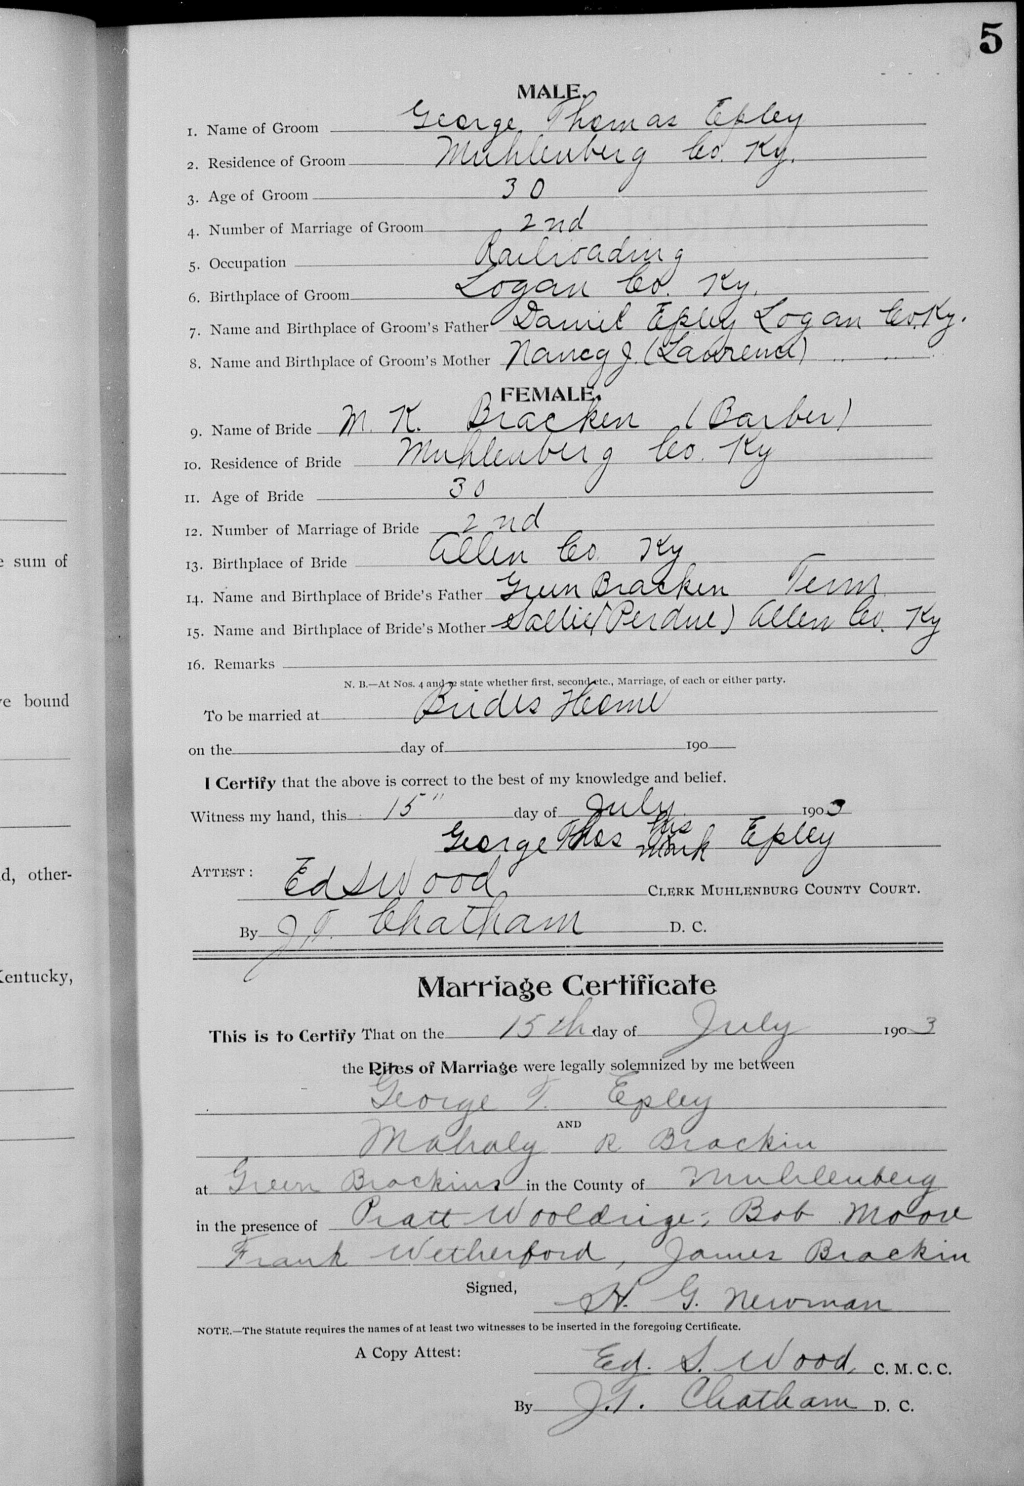 5
MALE.
1. Name of Groom George Thomas Epley
2. Residence of Groom Muhlenberg Co. Ky.
3. Age of Groom 30
4. Number of Marriage of Groom 2nd
5. Occupation Railroading
6. Birthplace of Groom Logan Co. Ky.
7. Name and Birthplace of Groom's Father Daniel Epley Logan Co. Ky.
8. Name and Birthplace of Groom's Mother Nancy J. (Lawrence) " "
FEMALE.
9. Name of Bride M. K. Bracken (Barber)
10. Residence of Bride Muhlenberg Co. Ky
11. Age of Bride 30
12. Number of Marriage of Bride 2nd
13. Birthplace of Bride Allen Co. Ky
14. Name and Birthplace of Bride's Father Green Bracken Tenn
15. Name and Birthplace of Bride's Mother Sallie (Perdue) Allen Co. Ky
16. Remarks
N. B.—At Nos. 4 and 12 state whether first, second, etc., Marriage, of each or either party.
To be married at Brides Home
on the day of 190
I Certify that the above is correct to the best of my knowledge and belief.
Witness my hand, this 15" day of July 1903
George Thos his mark Epley
ATTEST: Ed S Wood CLERK MUHLENBURG COUNTY COURT.
By J.T. Chatham D. C.
Marriage Certificate
This is to Certify That on the 15th day of July 1903
the Rites of Marriage were legally solemnized by me between
George T. Epley
AND
Mahaly R Brackin
at Green Brackins in the County of Muhlenberg
in the presence of Pratt Wooldrige, Bob Moore
Frank Wetherford, James Brackin
Signed, H. G. Newman
NOTE.—The Statute requires the names of at least two witnesses to be inserted in the foregoing Certificate.
A Copy Attest: Ed. S. Wood C. M. C. C.
By J.T. Chatham D. C.
e sum of
ve bound
d, other-
Kentucky,